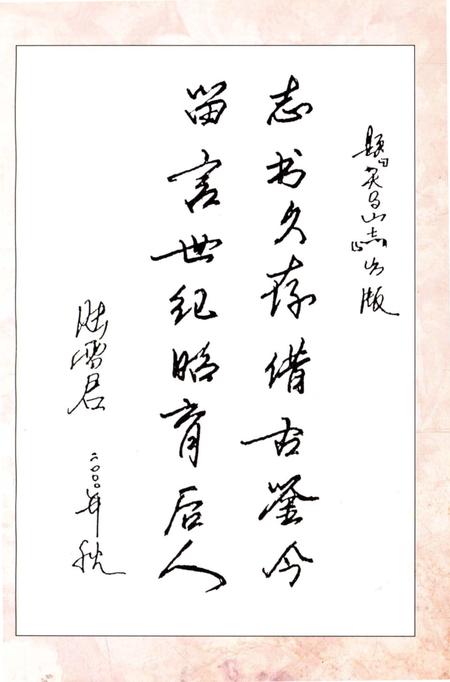 题灵马山志出版
志书久存借古鉴今
留言世纪昭育后人
陆
君
二〇〇〇年秋